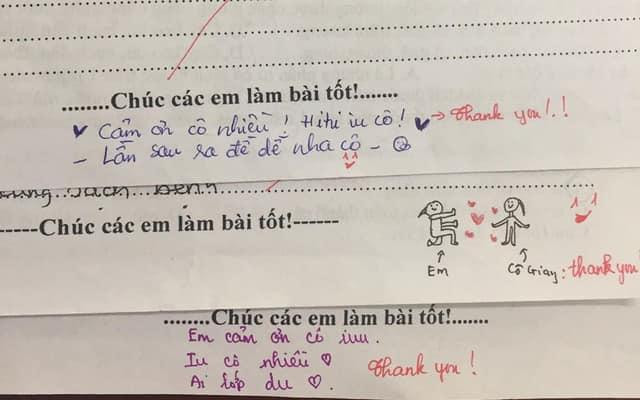 ........Chúc các em làm bài tốt!.......
Cảm ơn cô nhiều! Hihi iu cô! → Thank you!!
- Lần sau ra đề dễ nha cô -
------Chúc các em làm bài tốt!------
Em
Cô Giay: thank you!
........Chúc các em làm bài tốt!.......
Em cảm ơn cô iuu.
Iu cô nhiều ♡ Thank you!
Ai lớp du ♡.